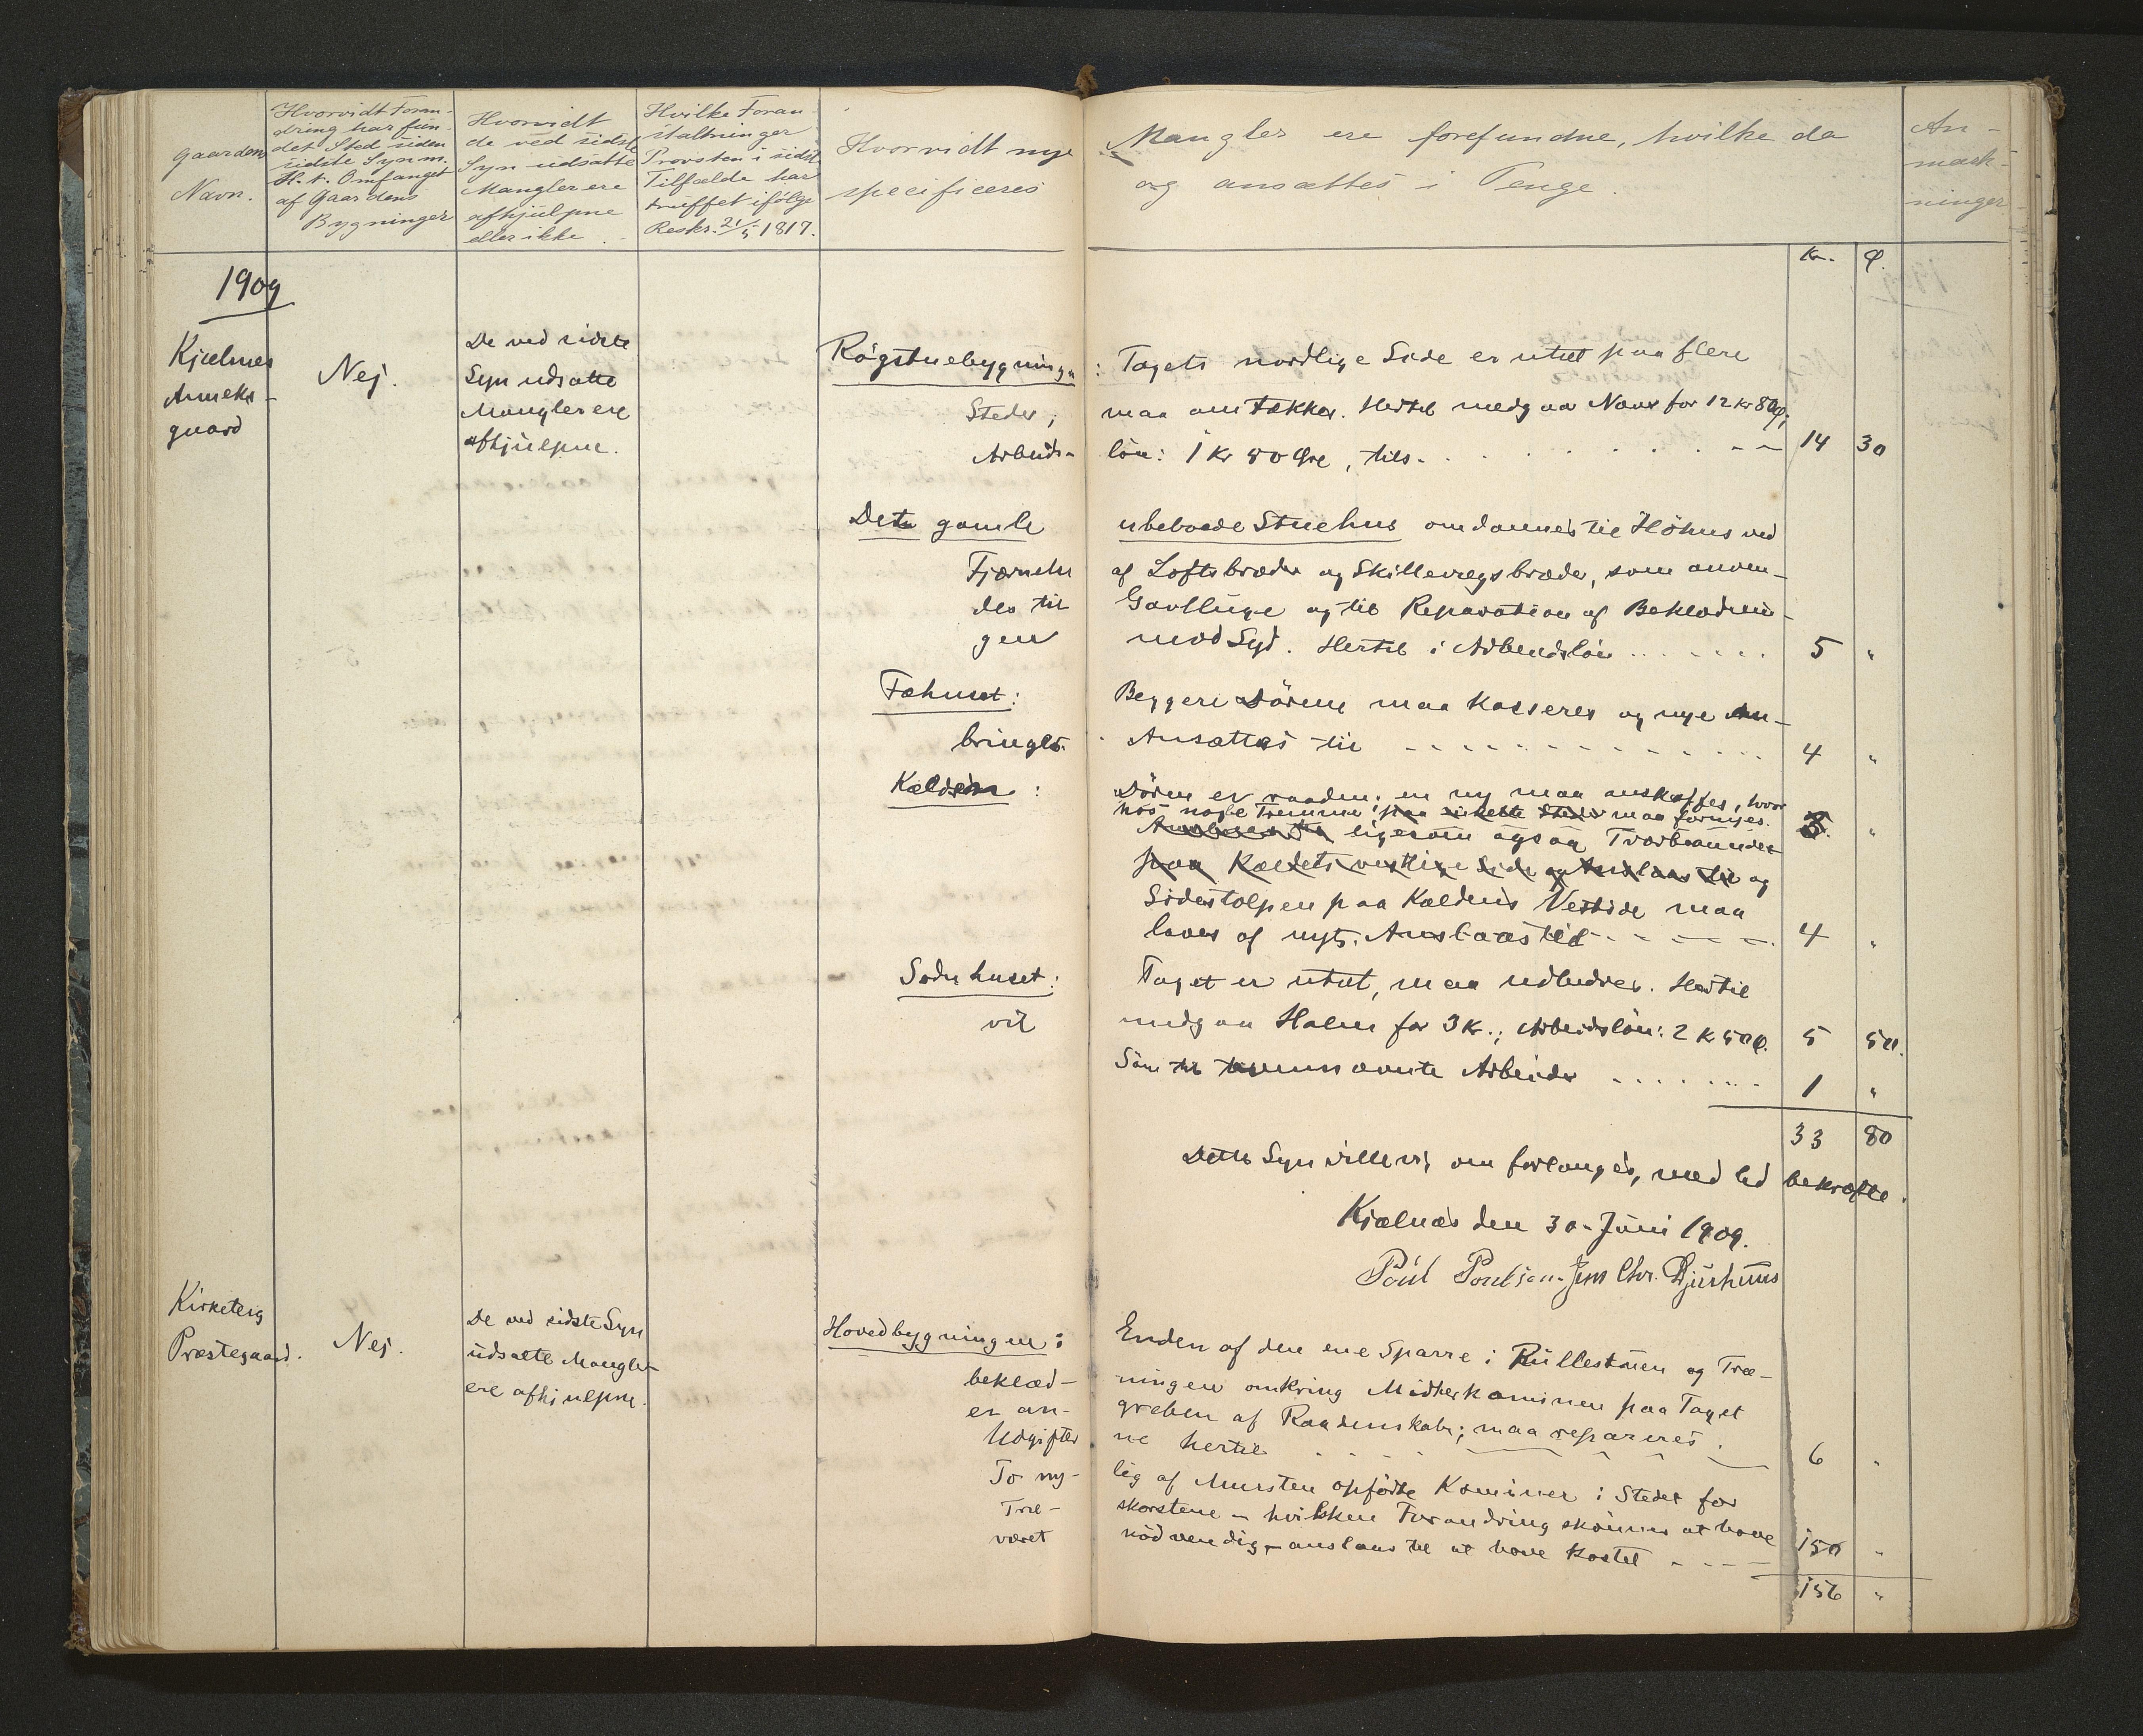 Gaardens
Navn.
Hvorvidt Foran-
dring har fun-
det Sted siden
sidste Syn m.
H. t. Omfanget
af Gaardens
Bygninger
Hvorvidt
de ved sidste
Syn udsatte
Mangler ere
afhjulpne
eller ikke.
Hvilke Foran-
staltninger
Provsten i sidst
Tilfælde har
truffet ifølge
Reskr. 21/5 1817.
Hvorvidt nye Mangler ere forefundne, hvilke da
specificeres og ansættes i Penge.
An-
mærk-
ninger
Kr. Ø.
1909
Kjælnes
Anneks-
gaard
Nej.
De ved sidste
Syn udsatte
Mangler ere
afhjulpne.
Rögstuebygningen: Tagets nordlige Side er utæt paa flere
Steder; maa omtækkes. Hertil medgaar Næver for 12 Kr 80 Ø;
Arbeids- lön: 1 Kr 50 Øre, tils. 14 30
Det gamle ubeboede Stuehus omdannes til Höhus ved
Fjærnelse af Loftsbræder og Skillevægsbræder, som anven-
des til Gavlluge og til Reparation af Beklædnin-
gen mod Syd. Hertil i Arbeidslön 5 "
Fæhuset: Beggere Dörene maa kasseres og nye An-
bringes. Ansættes til 4 "
Kælderen: Dören er raaden; en ny maa anskaffes, hvor
hos nogle Tremmer paa enkelte Steder maa fornyes.
ligesom ogsaa Tværbaandet
paa Kældets vestlige Side og Anslaaes til og
Sidestolpen paa Kældens Vestside maa
laves af nyt. Anslaaes til 4 "
Sodnhuset: Taget er utæt, maa udbedres. Hertil
vil medgaa Halm for 3 Kr.; Arbeidslön: 2 Kr 50 Ø. 5 50.
Söm til Arbeider 1 "
33 80
Dette Syn ville vi, om forlanges, med Ed bekræfte.
Kjælnæs den 30. Juni 1909.
Poul Poulsen. Jens Chr. Djurhuus
Kirketeig
Præstegaard.
Nej.
De ved sidste Syn
udsatte Mangler
ere afhjulpne.
Hovedbygningen: Enden af den ene Sparre i Rullestuen og Træ-
beklæd- ningen omkring Midterkaminen paa Taget
er an- greben af Raaddenskab; maa repareres.
Udgifter ne hertil 6 "
To ny- lig af Mursten opförte Kaminer i Stedet for
Træ- skorstene – hvilken Forandring skönnes at have
været nödvendig – anslaaes til at have kostet 150 "
156 "